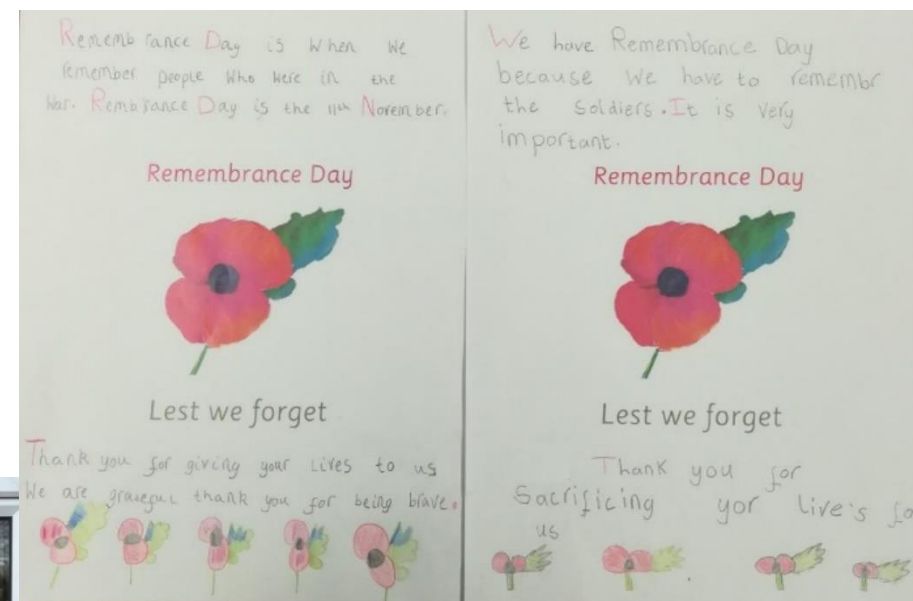 Rememb rance Day is when we
remember people who were in the
War. Rembrance Day is the 11th November.
Remembrance Day
Lest we forget
Thank you for giving your lives to us
We are grateful thank you for being brave.
We have Remembrance Day
because we have to remembr
the soldiers. It is very
important.
Remembrance Day
Lest we forget
Thank you for
Sacrificing yor live's fo
us